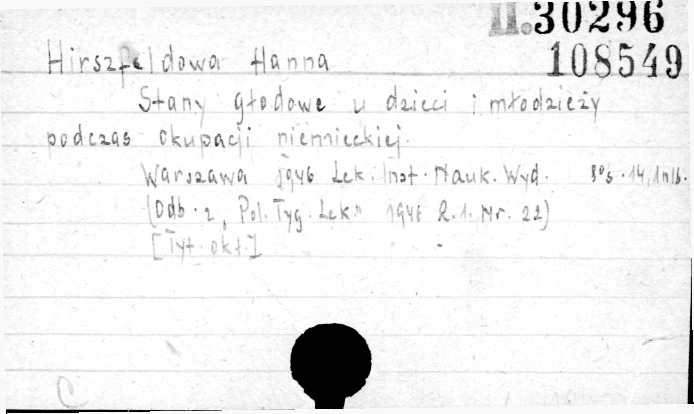 II.30296
108549
Hirszfeldowa Hanna
Stany głodowe u dzieci i młodzieży
podczas okupacji niemieckiej.
Warszawa 1946 Lek. Inst. Nauk. Wyd. s. 14, 1 nlb.
(Odb. z "Pol. Tyg. Lek." 1946 R.1. Nr. 22)
[Tyt. okł.]
C